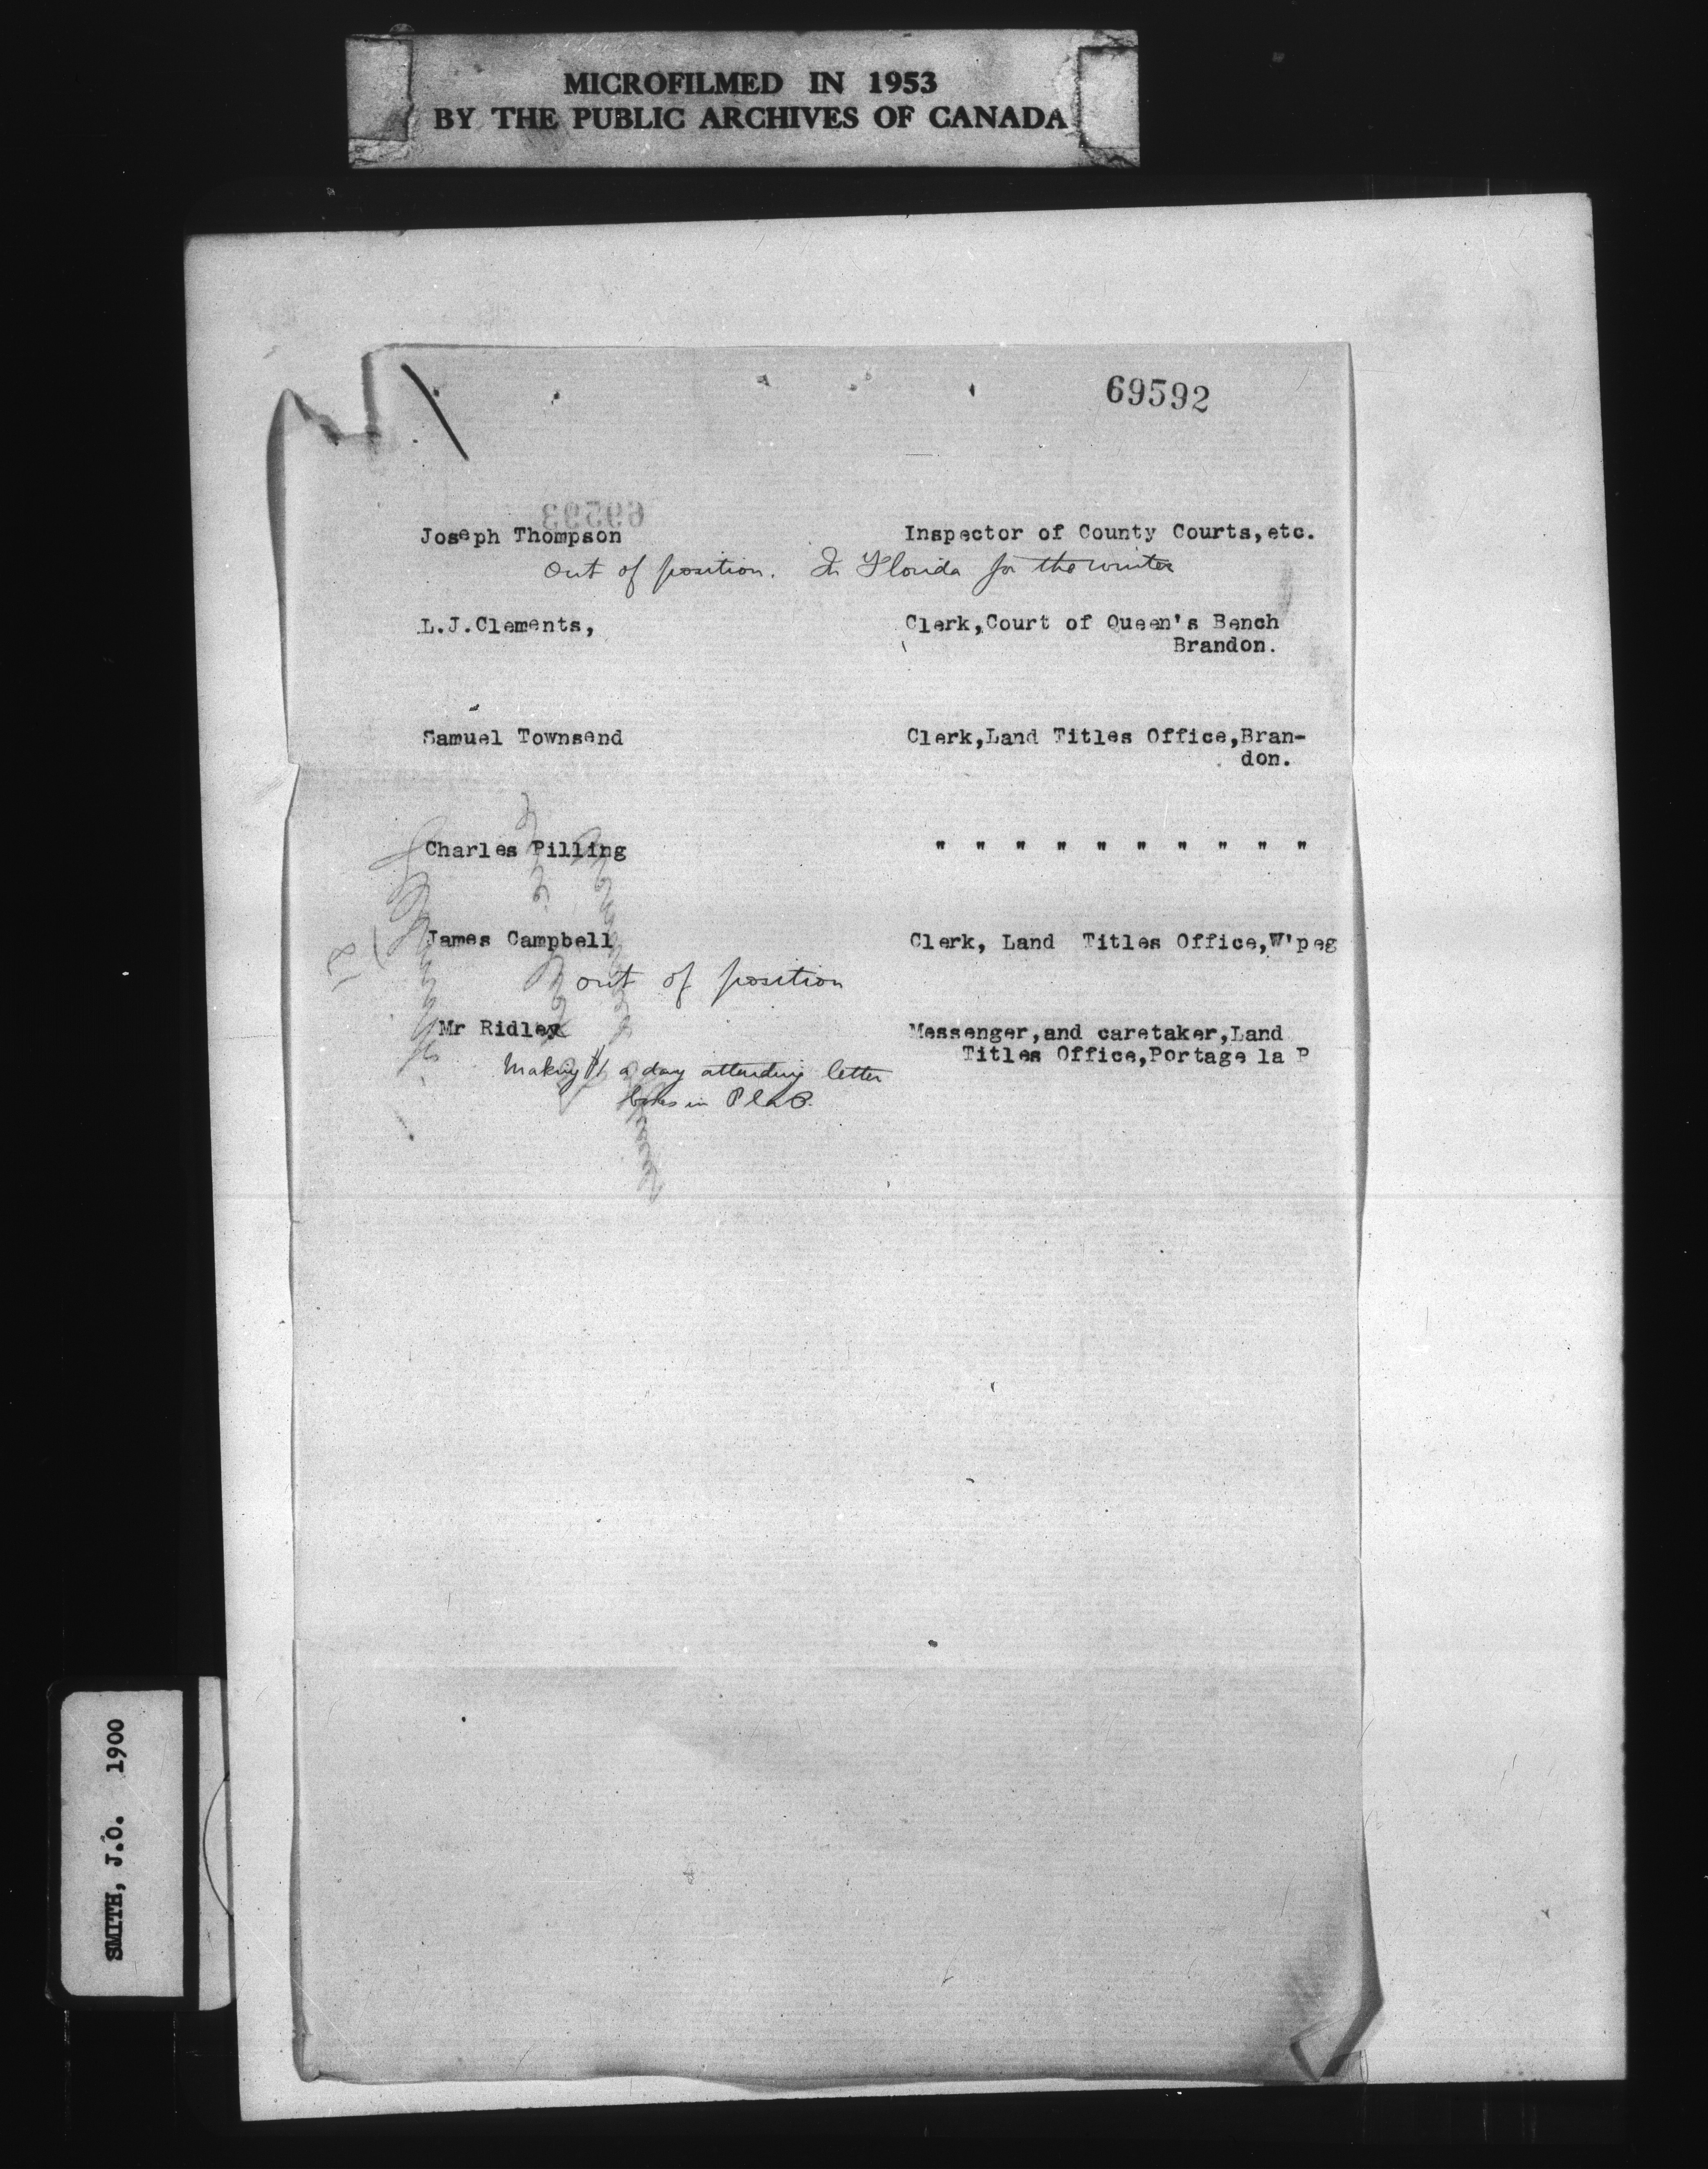 MICROFILMED IN 1953
BY THE PUBLIC ARCHIVES OF CANADA
69592
69593
Joseph Thompson Inspector of County Courts,etc.
Out of position. In Florida for the winter
L.J.Clements, Clerk,Court of Queen's Bench
Brandon.
Samuel Townsend Clerk,Land Titles Office,Bran-
don.
Charles Pilling " " " " " " " " " "
James Campbell Clerk, Land Titles Office,W'peg
out of position
Mr Ridley Messenger,and caretaker,Land
Titles Office,Portage la P
Making $1 a day attending letter
boxes in P la P.
SMITH, J.O. 1900